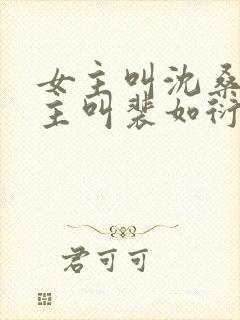 女主叫沈桑
主叫裴如衍
君可可